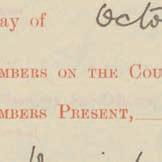 ay of Octo
MBERS ON THE COU
MBERS PRESENT,